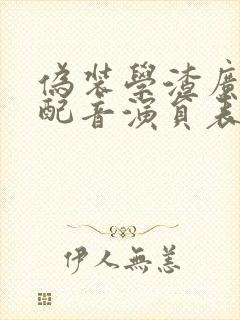 偽裝學渣廣
配音演員表
伊人無恙